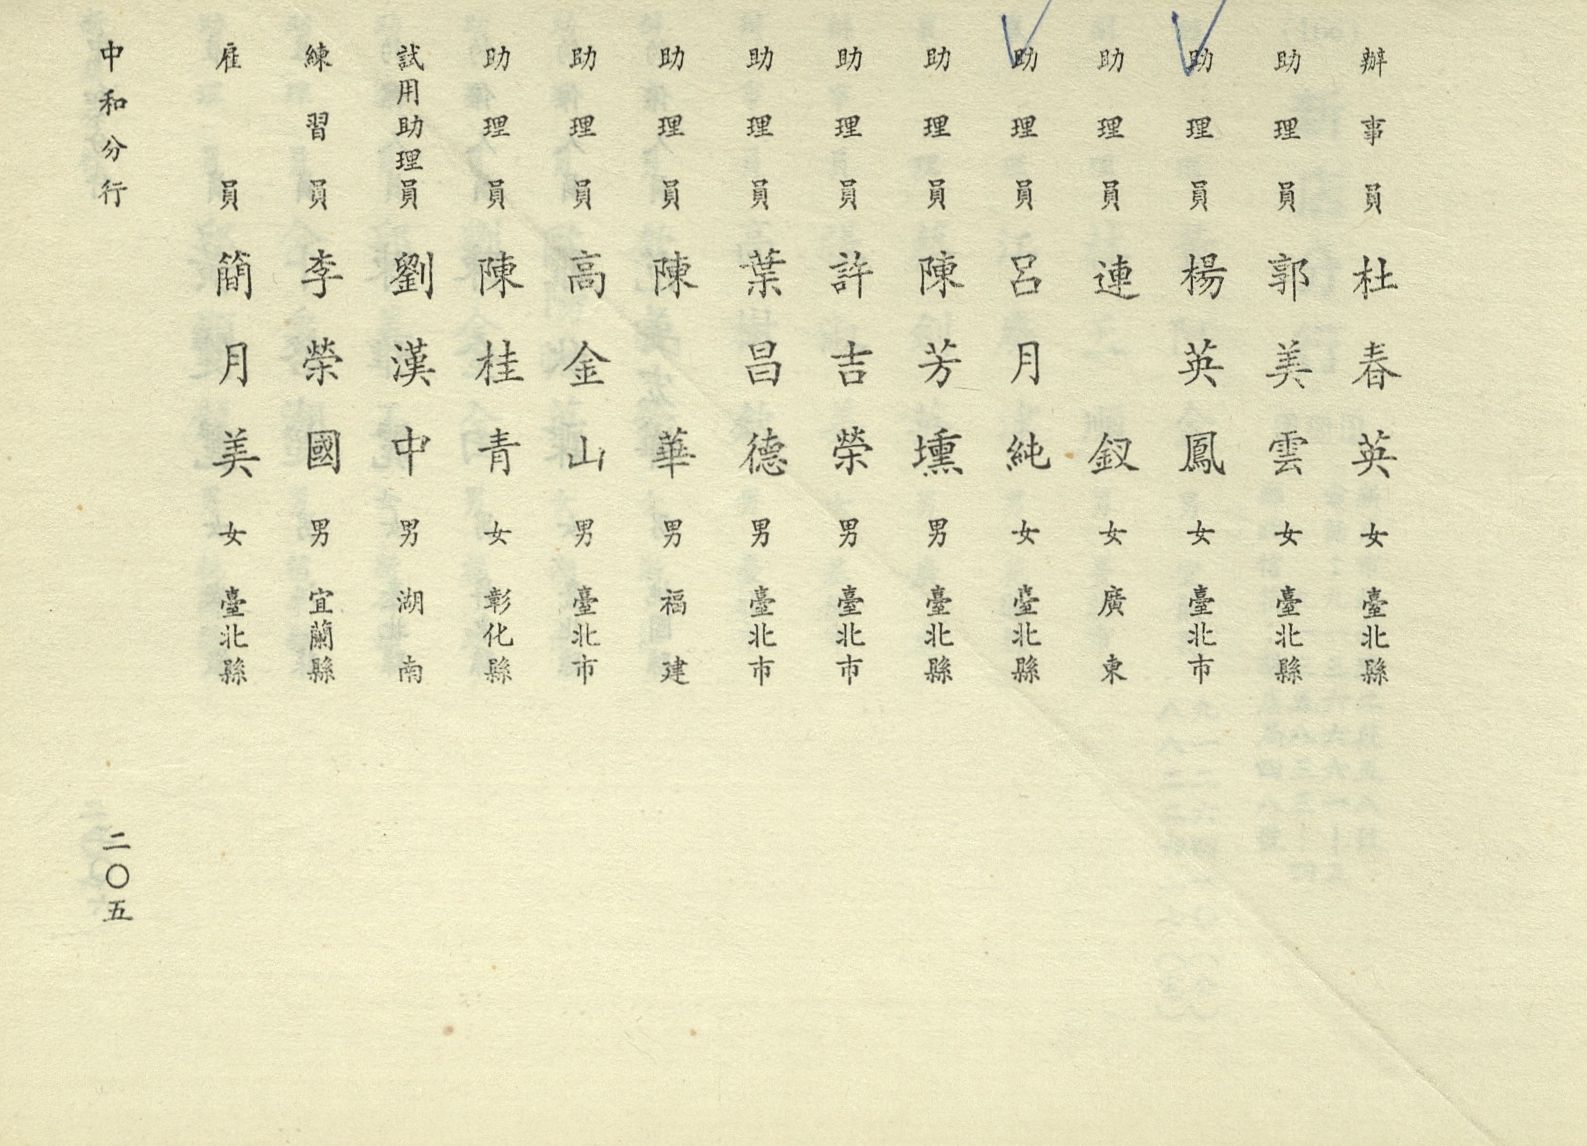 辦事員 杜春英 女 臺北縣
助理員 郭美雲 女 臺北縣
助理員 楊英鳳 女 臺北市
助理員 連釵 女 廣東
助理員 呂月純 女 臺北縣
助理員 陳芳壎 男 臺北縣
助理員 許吉榮 男 臺北市
助理員 葉昌德 男 臺北市
助理員 陳華 男 福建
助理員 高金山 男 臺北市
助理員 陳桂青 女 彰化縣
試用助理員 劉漢中 男 湖南
練習員 李榮國 男 宜蘭縣
雇員 簡月美 女 臺北縣
中和分行 二〇五